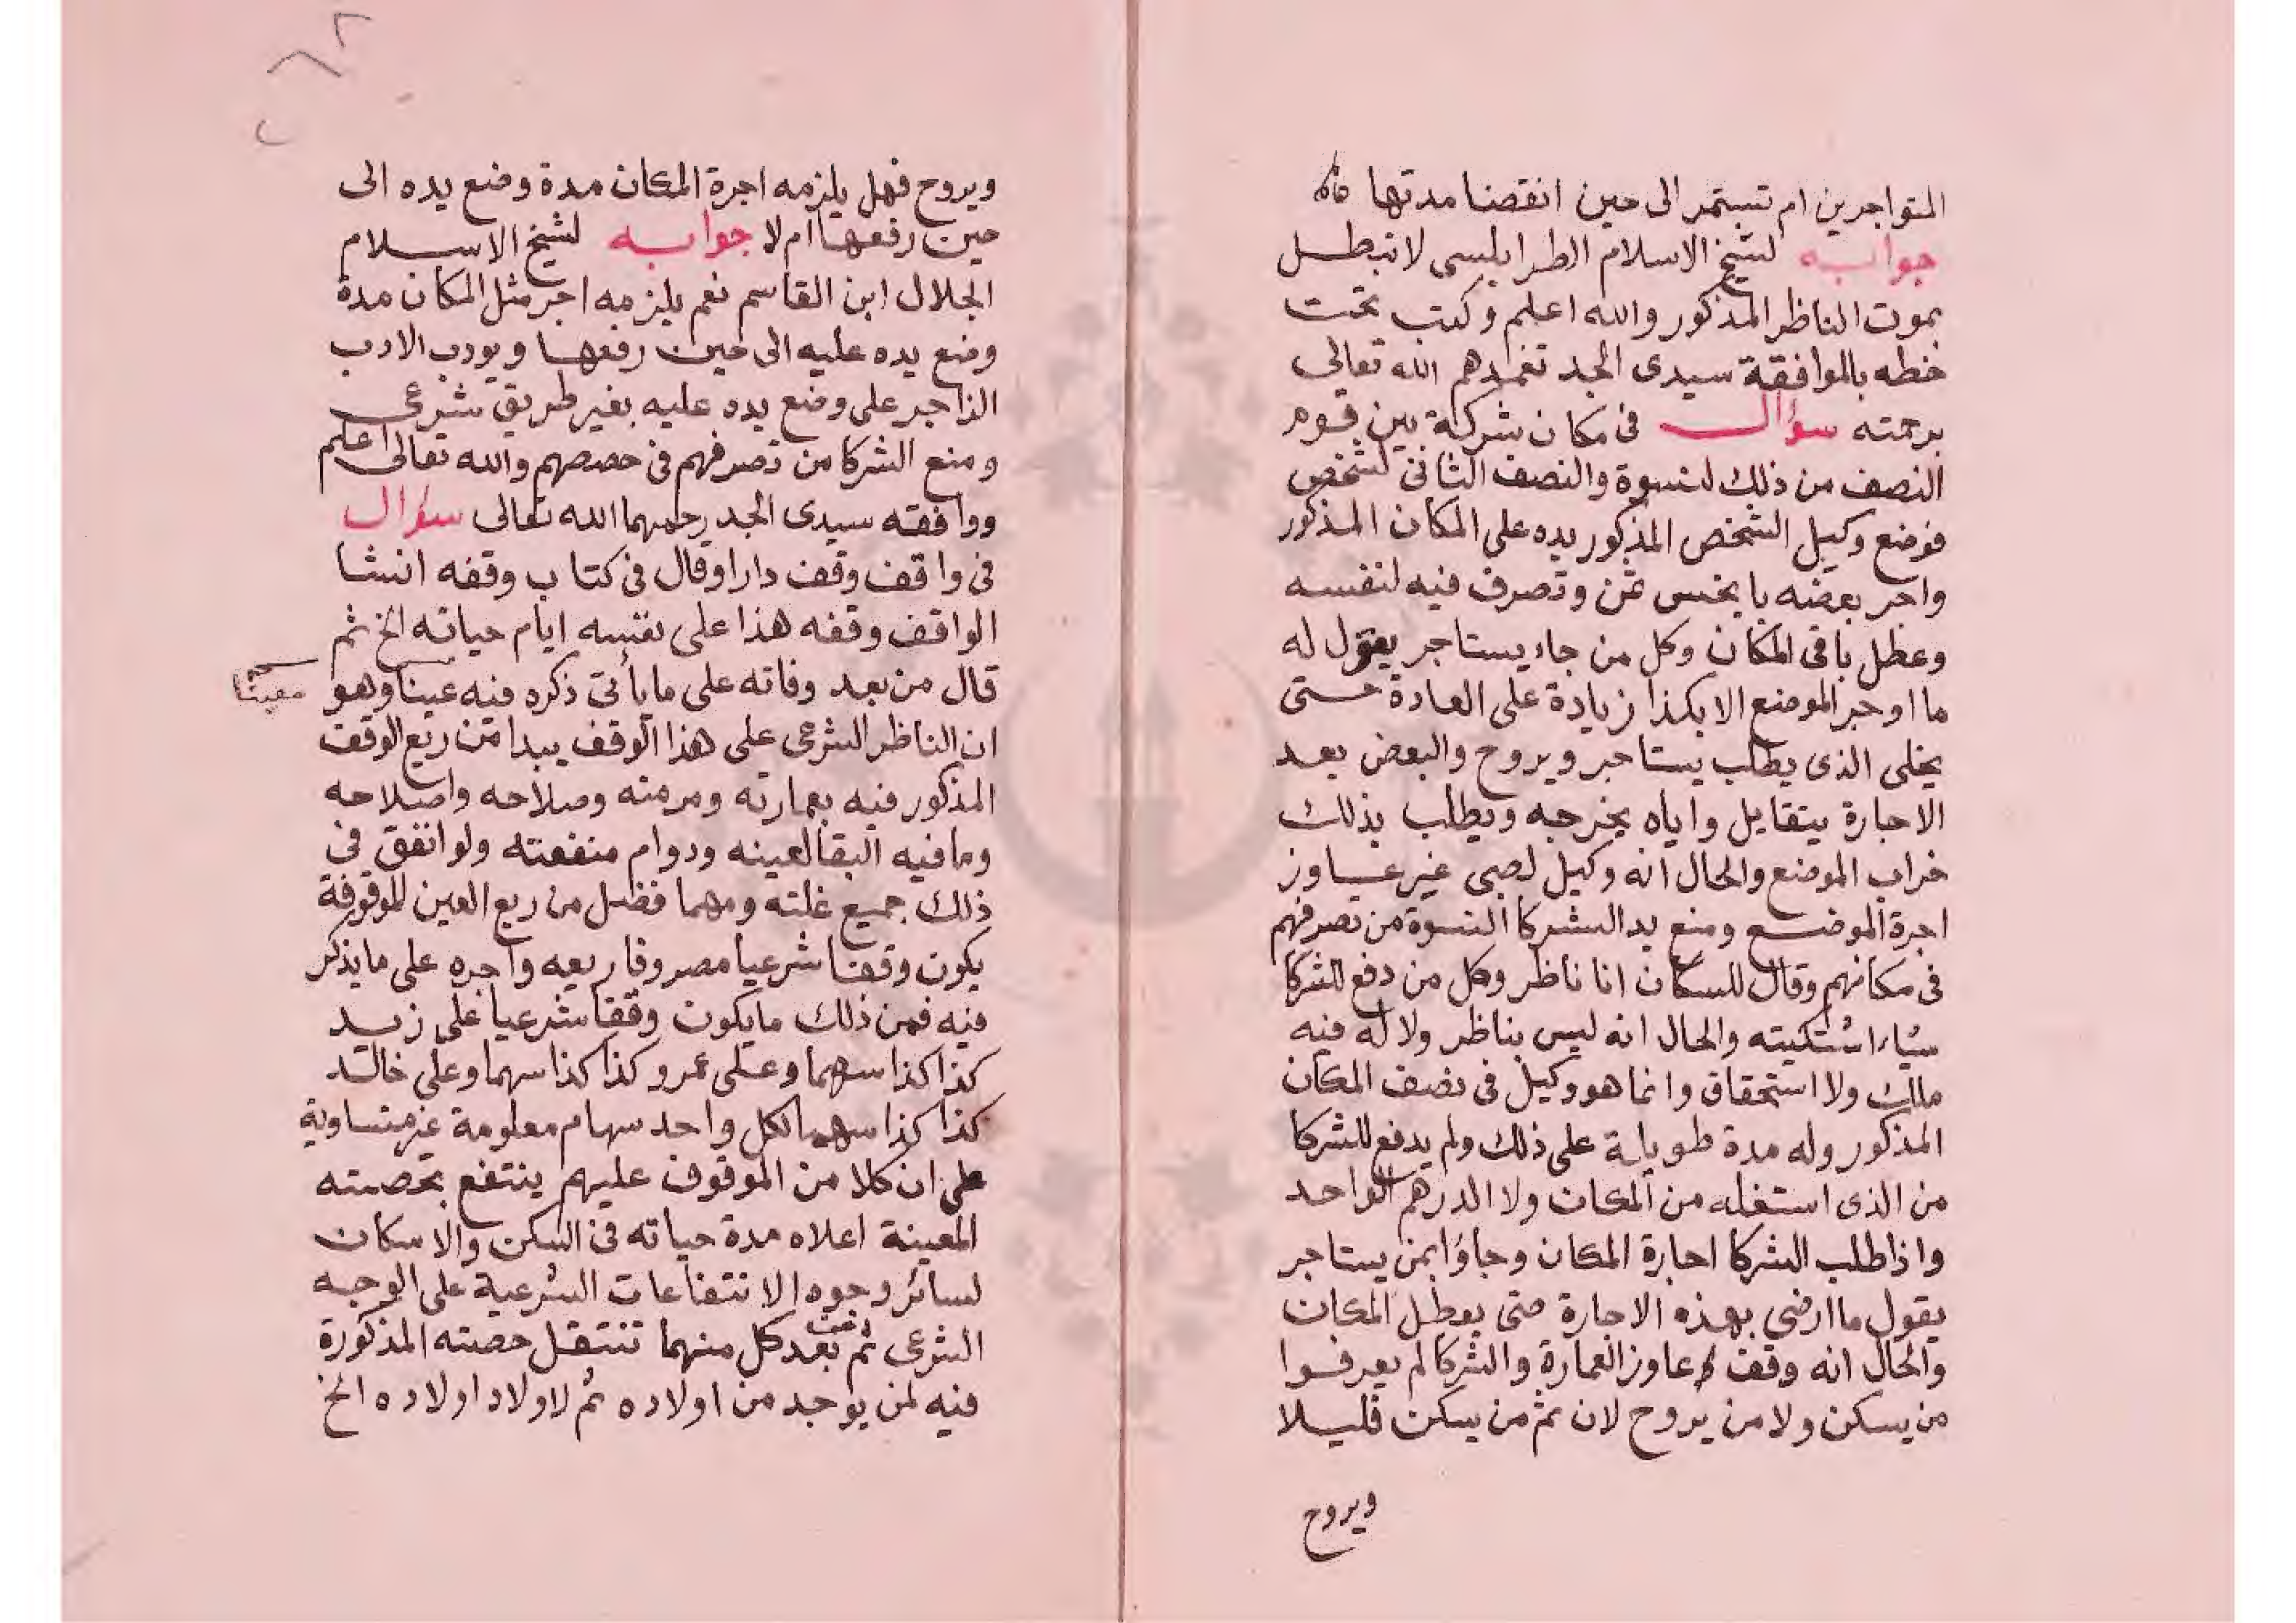 المتواجرين ام تستمر الى حين انقضا مدتها
جوابه لشيخ الاسلام الطرابلسى لا تبطل
بموت الناظر المذكور والله اعلم وكتب تحت
خطه بالموافقة سيدى الجد تغمدهم الله تعالى
برحمته سؤال فى مكان شركة بين قوم
النصف من ذلك لنسوة والنصف الثانى لشخص
فوضع وكيل الشخص المذكور يده على المكان المذكور
واجر بعضه بابخس ثمن وتصرف فيه لنفسه
وعطل باقى المكان وكل من جاء يستاجر يقول له
ما اوجر الموضع الا بكذا زيادة على العادة حتى
يخلى الذى يطلب يستاجر ويروح والبعض بعد
الاجارة يتقايل واياه يخرجه ويطلب بذلك
خراب الموضع والحال انه وكيل لصبى غير عاوز
اجرة الموضع ومنع يد الشركا النسوة من تصرفهم
فى مكانهم وقال للسكان انا ناظر وكل من دفع للشركا
شياء اشتكيته والحال انه ليس بناظر ولا له فيه
ملك ولا استحقاق وانما هو وكيل فى نصف المكان
المذكور وله مدة طويلة على ذلك ولم يدفع للشركا
من الذى استغله من المكان ولا الدرهم الواحد
واذا طلب الشركا اجارة المكان وجاؤا بمن يستاجر
يقول ما ارضى بهذه الاجارة حتى يعطل المكان
والحال انه وقف عاوز العمارة والشركا لم يعرفوا
من يسكن ولا من يروح لان ثم من يسكن قليلا
ويروح
ويروح فهل يلزمه اجرة المكان مدة وضع يده الى
حين رفعها ام لا جوابه لشيخ الاسلام
الجلال ابن القاسم نعم يلزمه اجر مثل المكان مدة
وضع يده عليه الى حين رفعها ويودب الادب
الزاجر على وضع يده عليه بغير طريق شرعى
ومنع الشركا من تصرفهم فى حصصهم والله تعالى اعلم
ووافقه سيدى الجد رحمهما الله تعالى سؤال
فى واقف وقف دارا وقال فى كتاب وقفه انشا
الواقف وقفه هذا على نفسه ايام حياته الخ ثم
قال من بعد وفاته على ما يأتى ذكره فيه عينا وهو
معينا
ان الناظر الشرعى على هذا الوقف يبدا من ريع الوقف
المذكور فيه بعمارته ومرمته وصلاحه واصلاحه
وما فيه البقا لعينه ودوام منفعته ولو انفق فى
ذلك جميع غلته ومهما فضل من ريع العين الموقوفة
يكون وقفا شرعيا مصروفا ريعه واجره على ما يذكر
فيه فمن ذلك ما يكون وقفا شرعيا على زيد
كذا كذا سهما وعلى عمرو كذا كذا سهما وعلى خالد
كذا كذا سهما لكل واحد سهام معلومة غير متساوية
على ان كلا من الموقوف عليهم ينتفع بحصته
المعينة اعلاه مدة حياته فى السكن والاسكان
لسائر وجوه الانتفاعات الشرعية على الوجه
الشرعى ثم بعد كل منهما تنتقل حصته المذكورة
فيه لمن يوجد من اولاده ثم لاولاد اولاده الخ